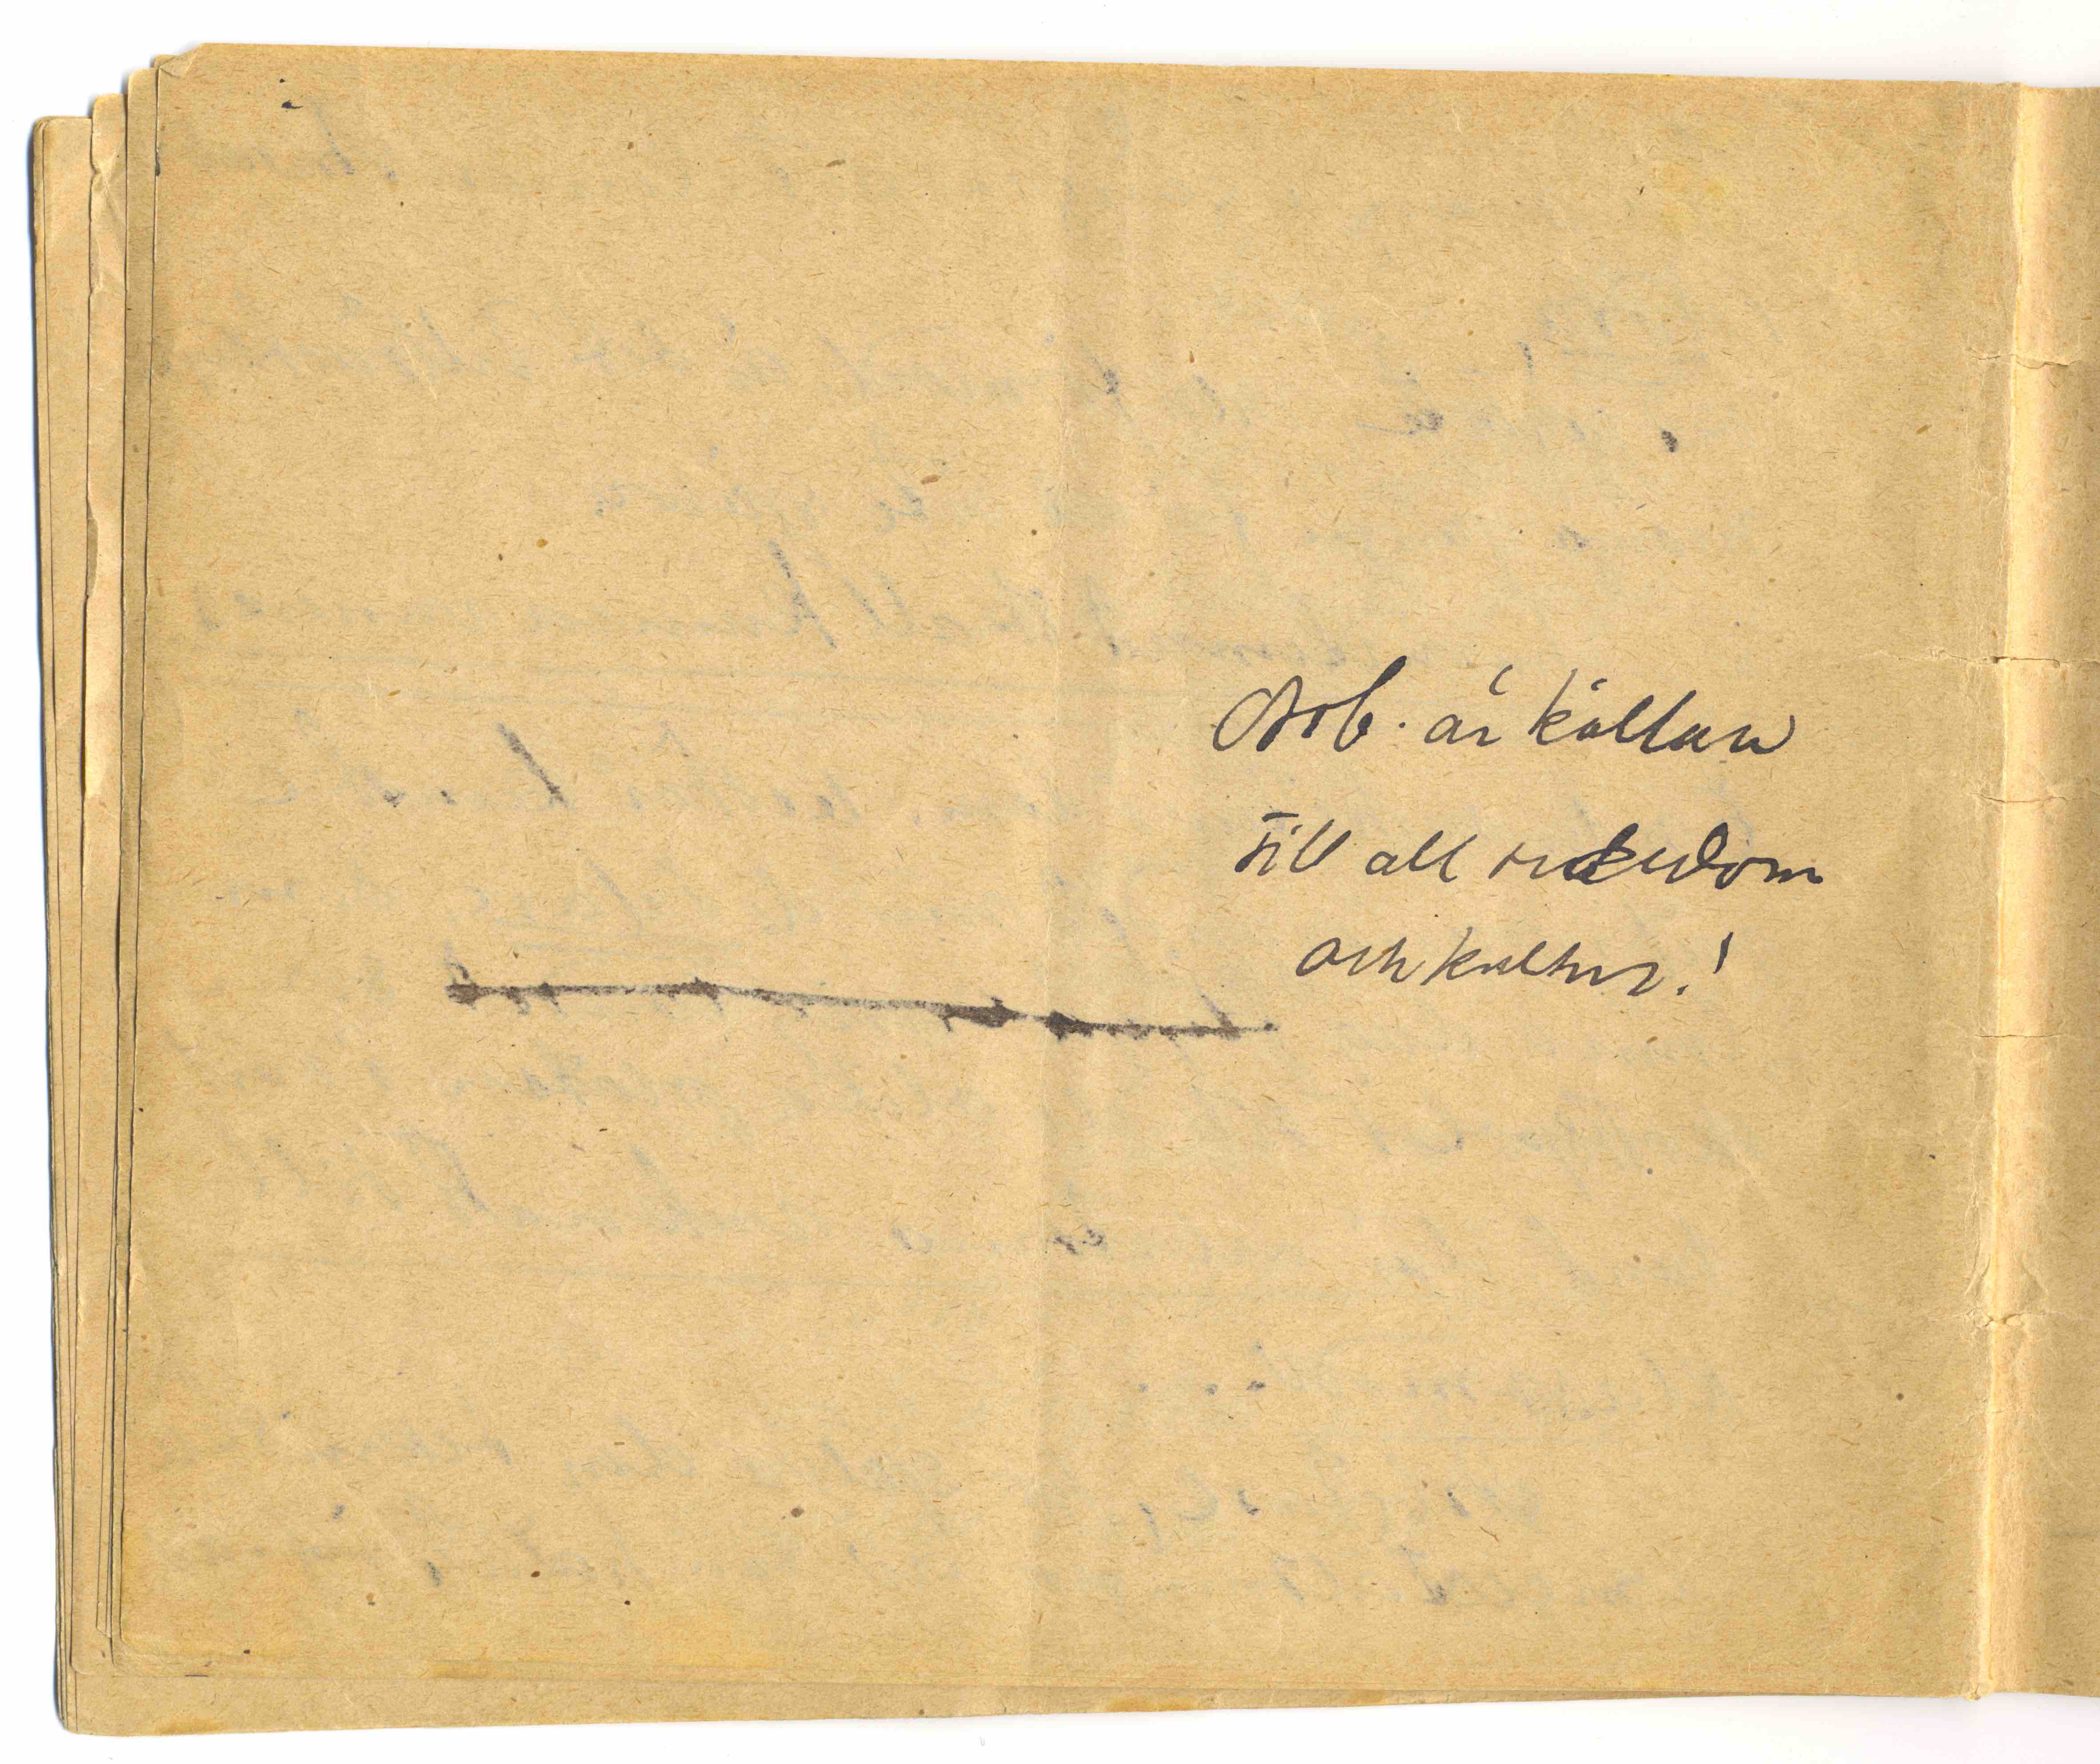 Arb. är källan
till all rikedom
och kultur!